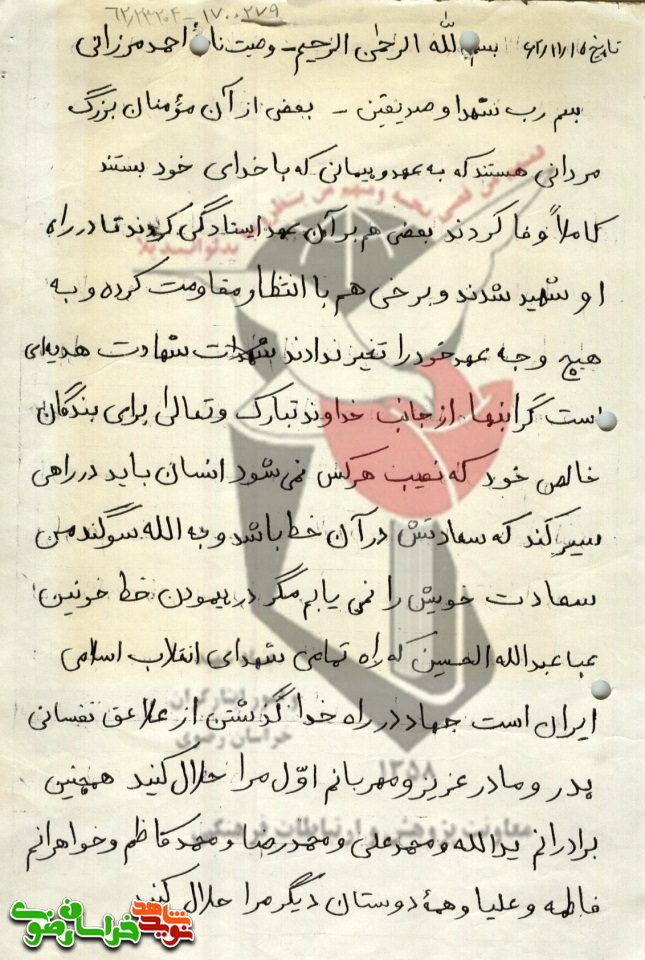 ۶۲/۲۳۲۰۴ - ۱۷۰۰۲۷۹
تاریخ ۶۲/۱۱/۱۵ بسم الله الرحمن الرحیم - وصیت نامهٔ احمد مرزانی
بسم رب شهدا و صدیقین - بعضی از آن مؤمنان بزرگ
مردانی هستند که به عهد و پیمانی که با خدای خود بستند
کاملاً وفا کردند بعضی هم بر آن عهد ایستادگی کردند تا در راه
او شهید شدند و برخی هم با انتظار مقاومت کرده و به
هیچ وجه عهد خود را تغیر ندادند شهادت هدیه‌ای
است گرانبها از جانب خداوند تبارک و تعالی برای بندگان
خالص خود که نصیب هر کس نمی شود انسان باید در راهی
سیر کند که سعادتش در آن خط باشد و به الله سوگند من
سعادت خویش را نمی یابم مگر در پیمودن خط خونین
عبا عبدالله الحسین که راه تمامی شهدای انقلاب اسلامی
ایران است جهاد در راه خدا گذشتن از علاعق نفسانی
پدر و مادر عزیز و مهربانم اوّل مرا حلال کنید همچنین
برادرانم یدالله و محمد علی و محمد رضا و محمد کاظم و خواهرانم
فاطمه و علیا و همهٔ دوستان دیگر مرا حلال کنید
خراسان رضوی
۱۳۵۸
معاونت پژوهش و ارتباطات فرهنگی
نوید شاهد
خراسان رضوی